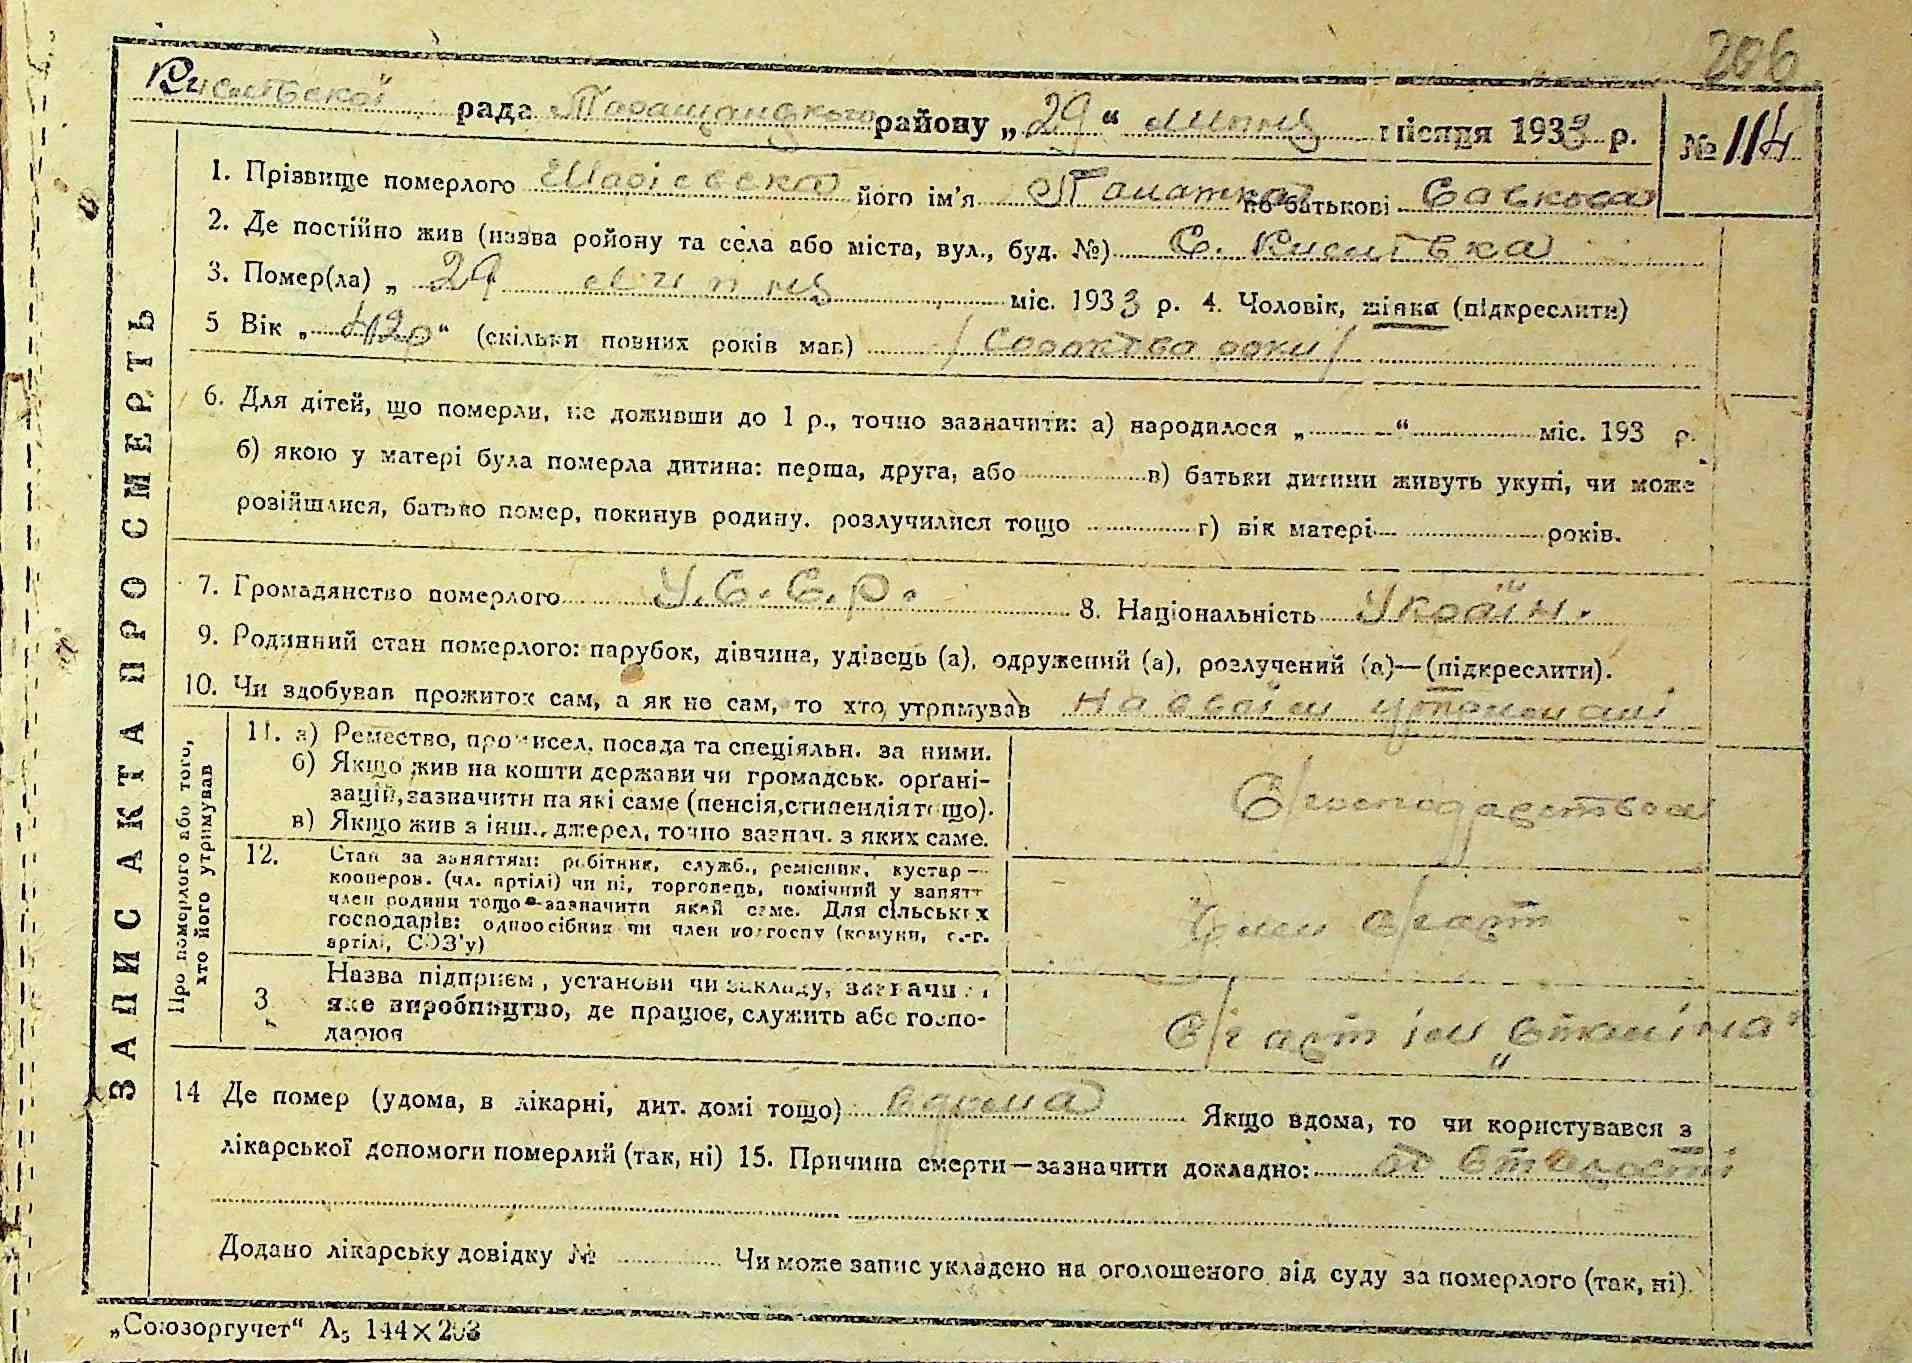 206
Киселівскої рада Таращанського району „29“ липня місяця 1933 р. № 114
1. Прізвище померлого його ім'я по батькові
2. Де постійно жив (назва ройону та села або міста, вул., буд. №) С. Киселівка
3. Помер(ла) „ 29 липня міс. 1933 р. 4. Чоловік, жінка (підкреслити)
5 Вік „ 42р “ (скільки повних років мав) / Сорок два роки /
6. Для дітей, що померли, не доживши до 1 р., точно зазначити: а) народилося „ “ міс. 193 р.
б) якою у матері була померла дитина: перша, друга, або в) батьки дитини живуть укупі, чи може
розійшлися, батько помер, покинув родину, розлучилися тощо г) вік матері років.
7. Громадянство померлого У.С.С.Р. 8. Національність Україн.
9. Родинний стан померлого: парубок, дівчина, удівець (а), одружений (а), розлучений (а)—(підкреслити).
10. Чи здобував прожиток сам, а як не сам, то хто утримував на своїм утримані
ЗАПИС АКТА ПРО СМЕРТЬ
Про померлого або того,
хто його утримував
11. а) Ремество, промисел, посада та спеціяльн. за ними.
б) Якщо жив на кошти держави чи громадськ. органі-
зацій, зазначити на які саме (пенсія, стипендія тощо).
в) Якщо жив з інш. джерел, точно зазнач. з яких саме.
С/господарства
12. Стан за заняттям: робітник, служб., ремісник, кустар—
кооперов. (чл. артілі) чи ні, торговець, помічний у занятт
член родини тощо—зазначити який саме. Для сільських
господарів: одноосібник чи член колгоспу (комуни, с.-г.
артілі, СОЗ'у)
Член с/г арт
3 Назва підприєм, установи чи закладу, зазначити
яке виробництво, де працює, служить або госпо-
дарює
С/г арт ім
14 Де помер (удома, в лікарні, дит. домі тощо) вдома Якщо вдома, то чи користувався з
лікарської допомоги померлий (так, ні) 15. Причина смерти—зазначити докладно: од
Додано лікарську довідку № Чи може запис укладено на оголошеного від суду за померлого (так, ні).
„Союзоргучет“ А5 144×203